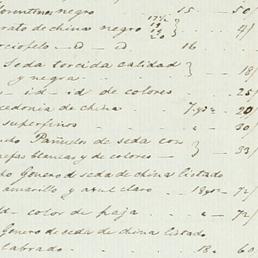 florentinos negro 15 — 50/
rato de china negro 17½ 19 20 } — 4/
rciopelo — d — d. 16
Seda torcida calidad
y negra — } — 18/
" — id — id de colores — 25/
cedonia de china 7.gs= 20/
" superfinos — " 30/
cho Pañuelos de seda con
nefas blancas y de colores — } — 33/
cho Genero de seda de china listado
amarillo y azul claro — 18gs= 72/
da — color de paja — " — 72/
Genero de seda de china listado
labrado — 18. — 60